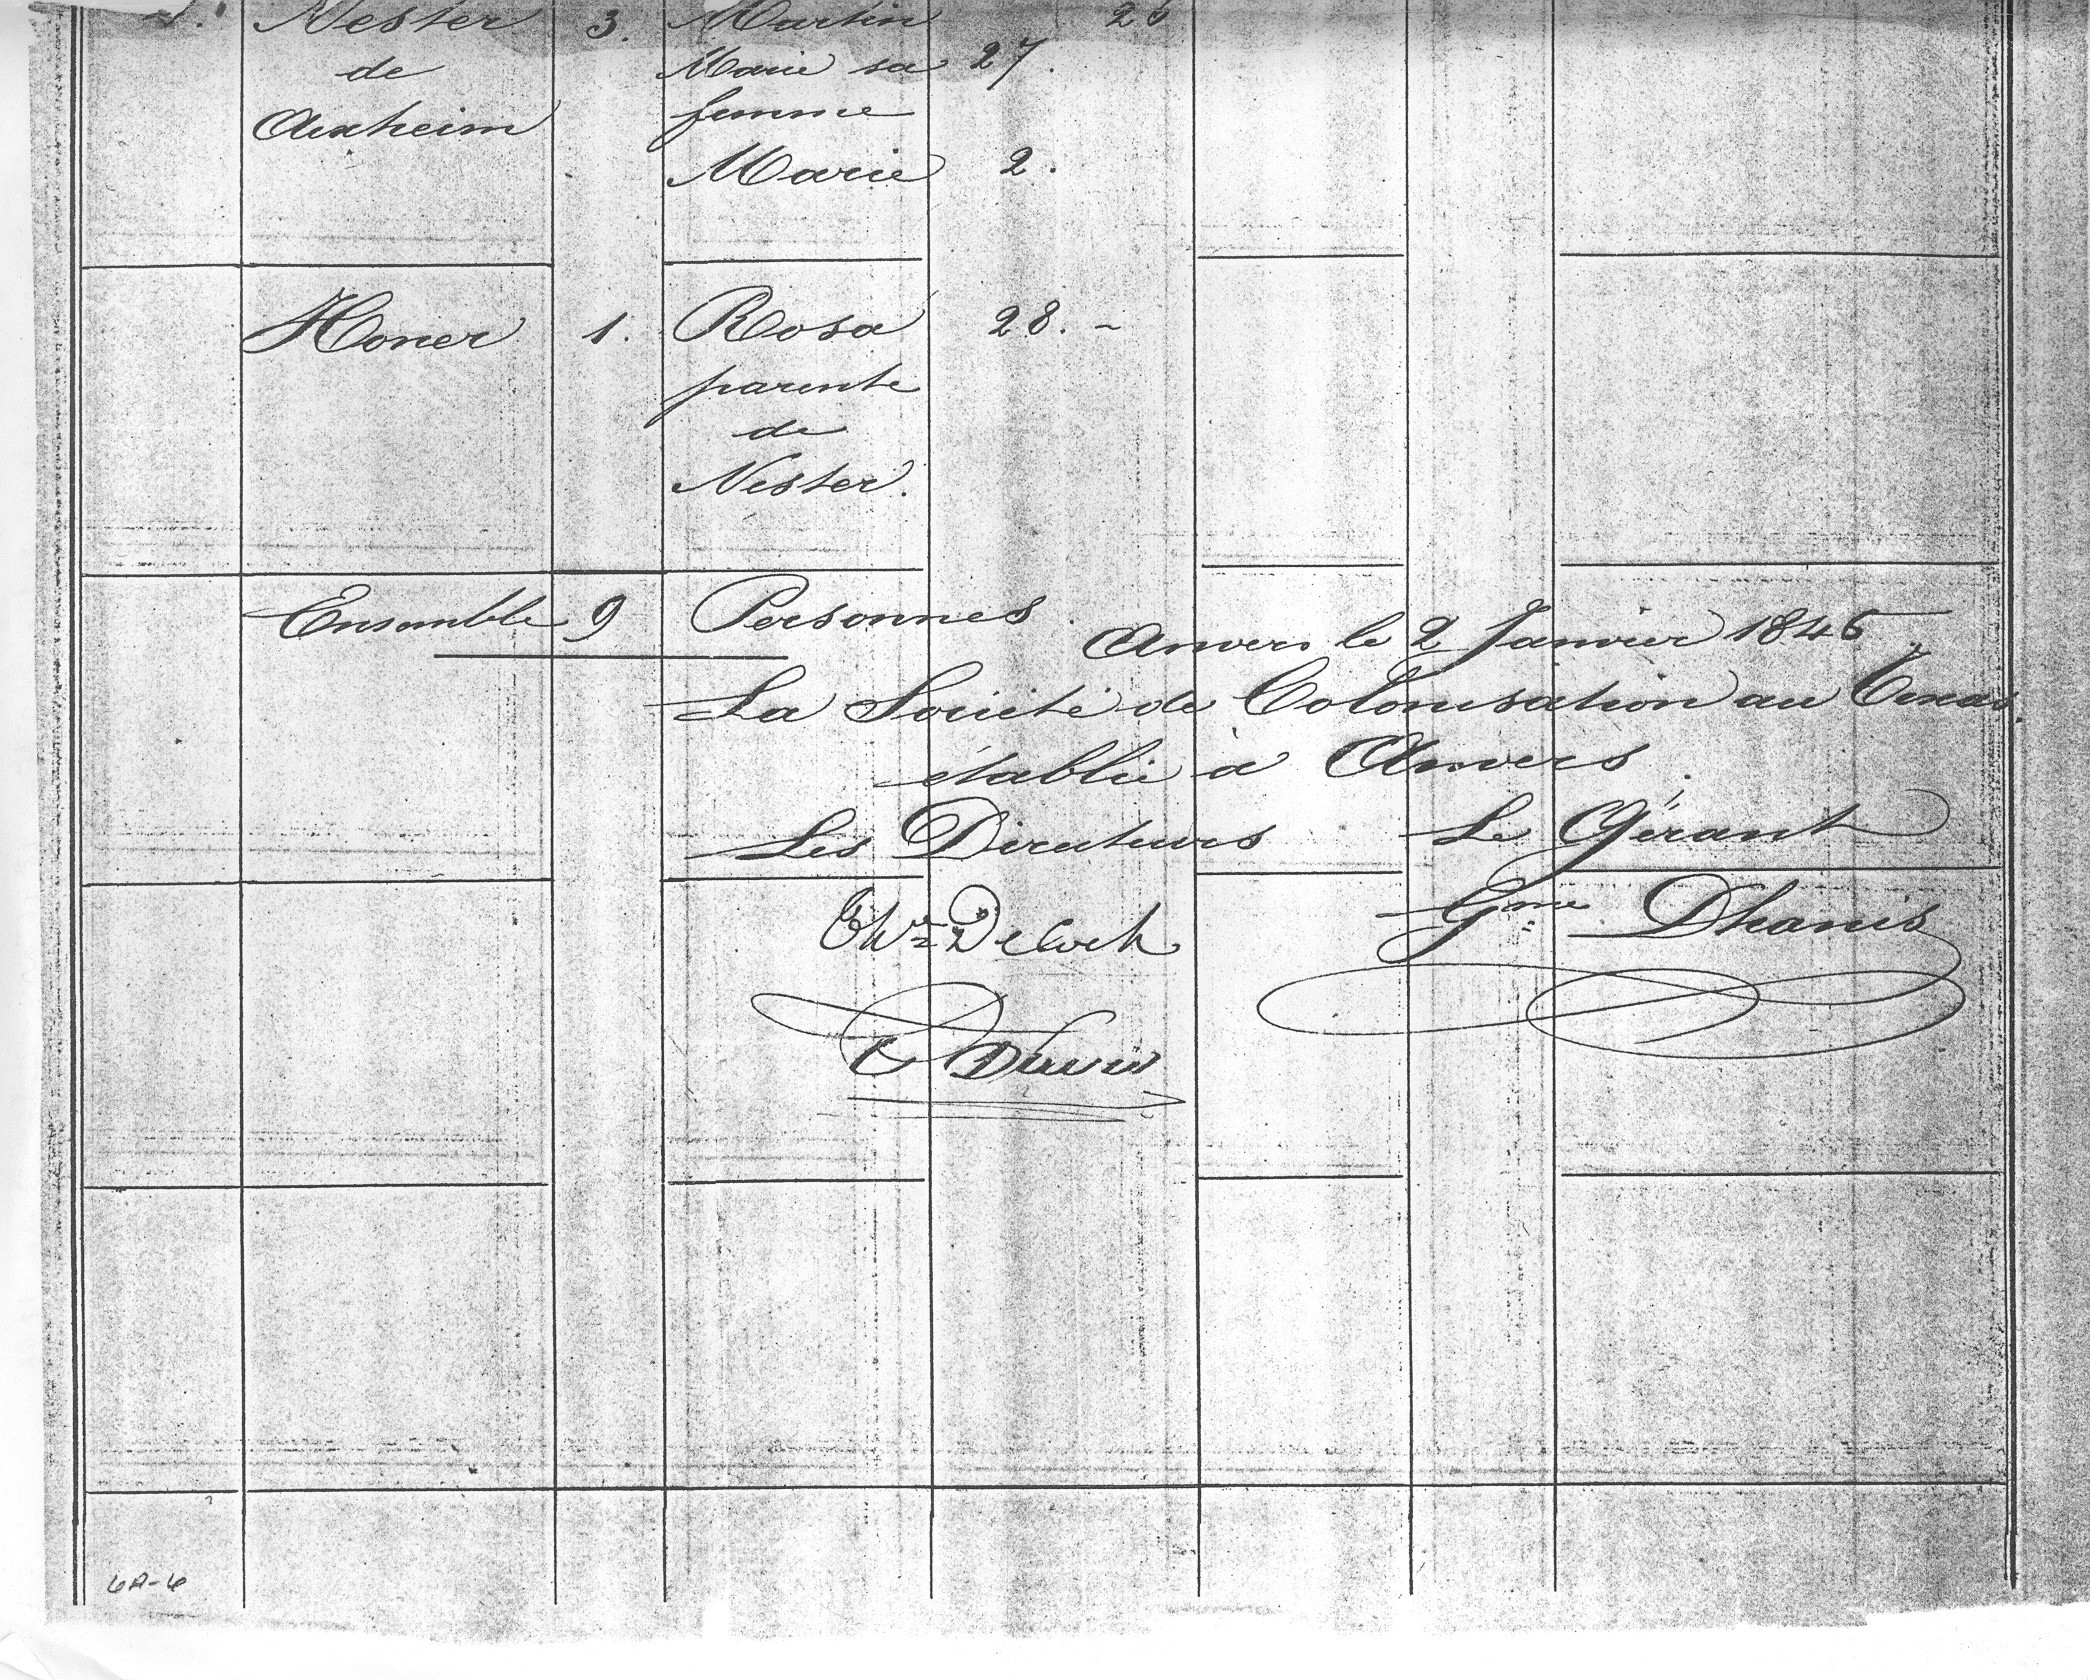 Nester 3. Martin 26
de Marie sa 27.
Auxheim femme
Marie 2.
Honer 1. Rosa 28. -
parente
de
Nester.
Ensemble 9 Personnes.
Anvers le 2 Janvier 1846.
La Société de Colonisation au Texas.
établie à Anvers.
Les Directeurs Le Gérant
DeCock Gme Dhanis
6A-6